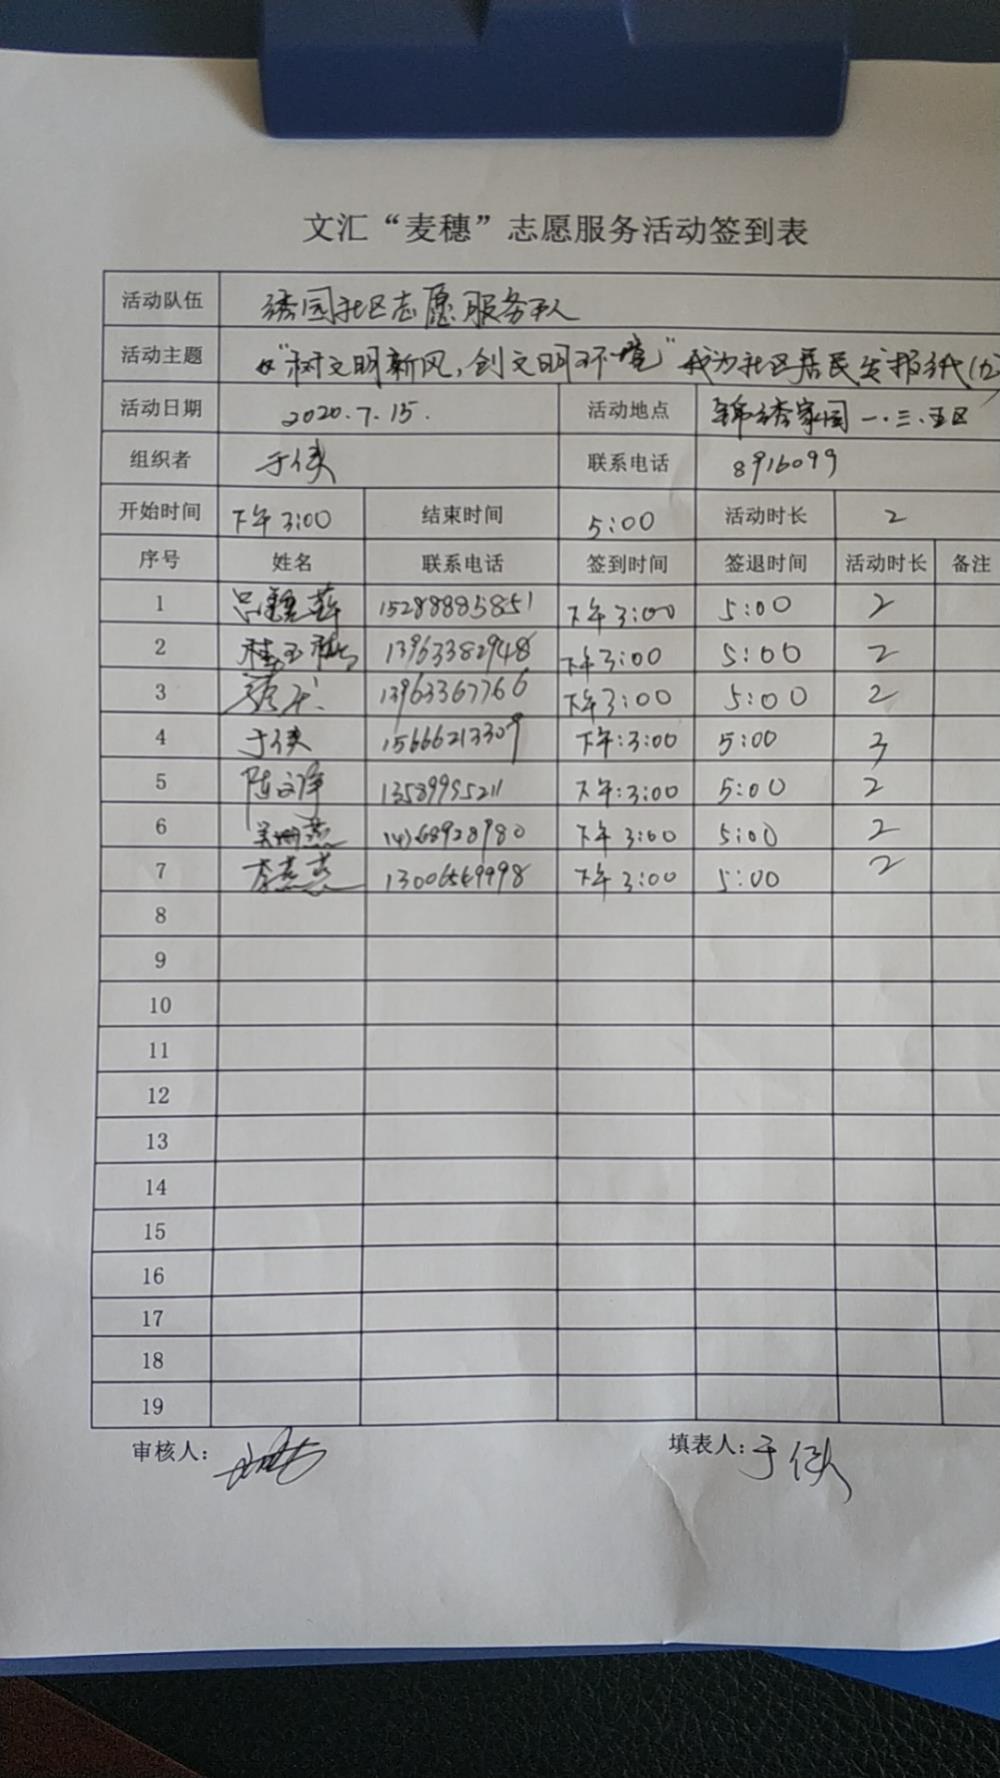 文汇“麦穗”志愿服务活动签到表
活动队伍 绣园社区志愿服务队
活动主题 “树文明新风，创文明环境”我为社区居民发报纸
活动日期 2020.7.15. 活动地点 锦绣家园一.三.五区
组织者 于侠 联系电话 8916099
开始时间 下午3:00 结束时间 5:00 活动时长 2
序号 姓名 联系电话 签到时间 签退时间 活动时长 备注
1 15288885851 下午3:00 5:00 2
2 13963382948 下午3:00 5:00 2
3 13963367766 下午3:00 5:00 2
4 于侠 15666213309 下午:3:00 5:00 3
5 13589955211 下午:3:00 5:00 2
6 下午3:00 5:00 2
7 李燕燕 下午3:00 5:00 2
8
9
10
11
12
13
14
15
16
17
18
19
审核人： 填表人：于侠